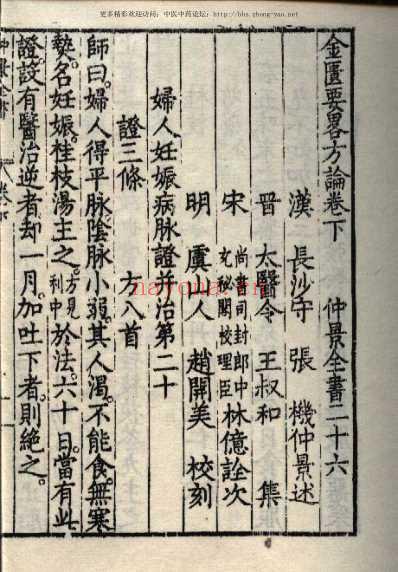 更多精彩欢迎访问：中医中药论坛：http://bbs.zhong-yao.net
金匱要畧方論卷下 仲景全書二十六
漢 長沙守 張 機仲景述
晉 太醫令 王叔和 集
宋 尚書司封郎中充秘閣校理臣 林億詮次
明 虞山人 趙開美 校刻
婦人妊娠病脉證并治第二十
證三條 方八首
師曰。婦人得平脉。陰脉小弱。其人渴。不能食。無寒
熱。名妊娠。桂枝湯主之。方見利中 於法。六十日。當有此
證。設有醫治逆者。却一月。加吐下者。則絶之。
仲景全書
nayona.cn